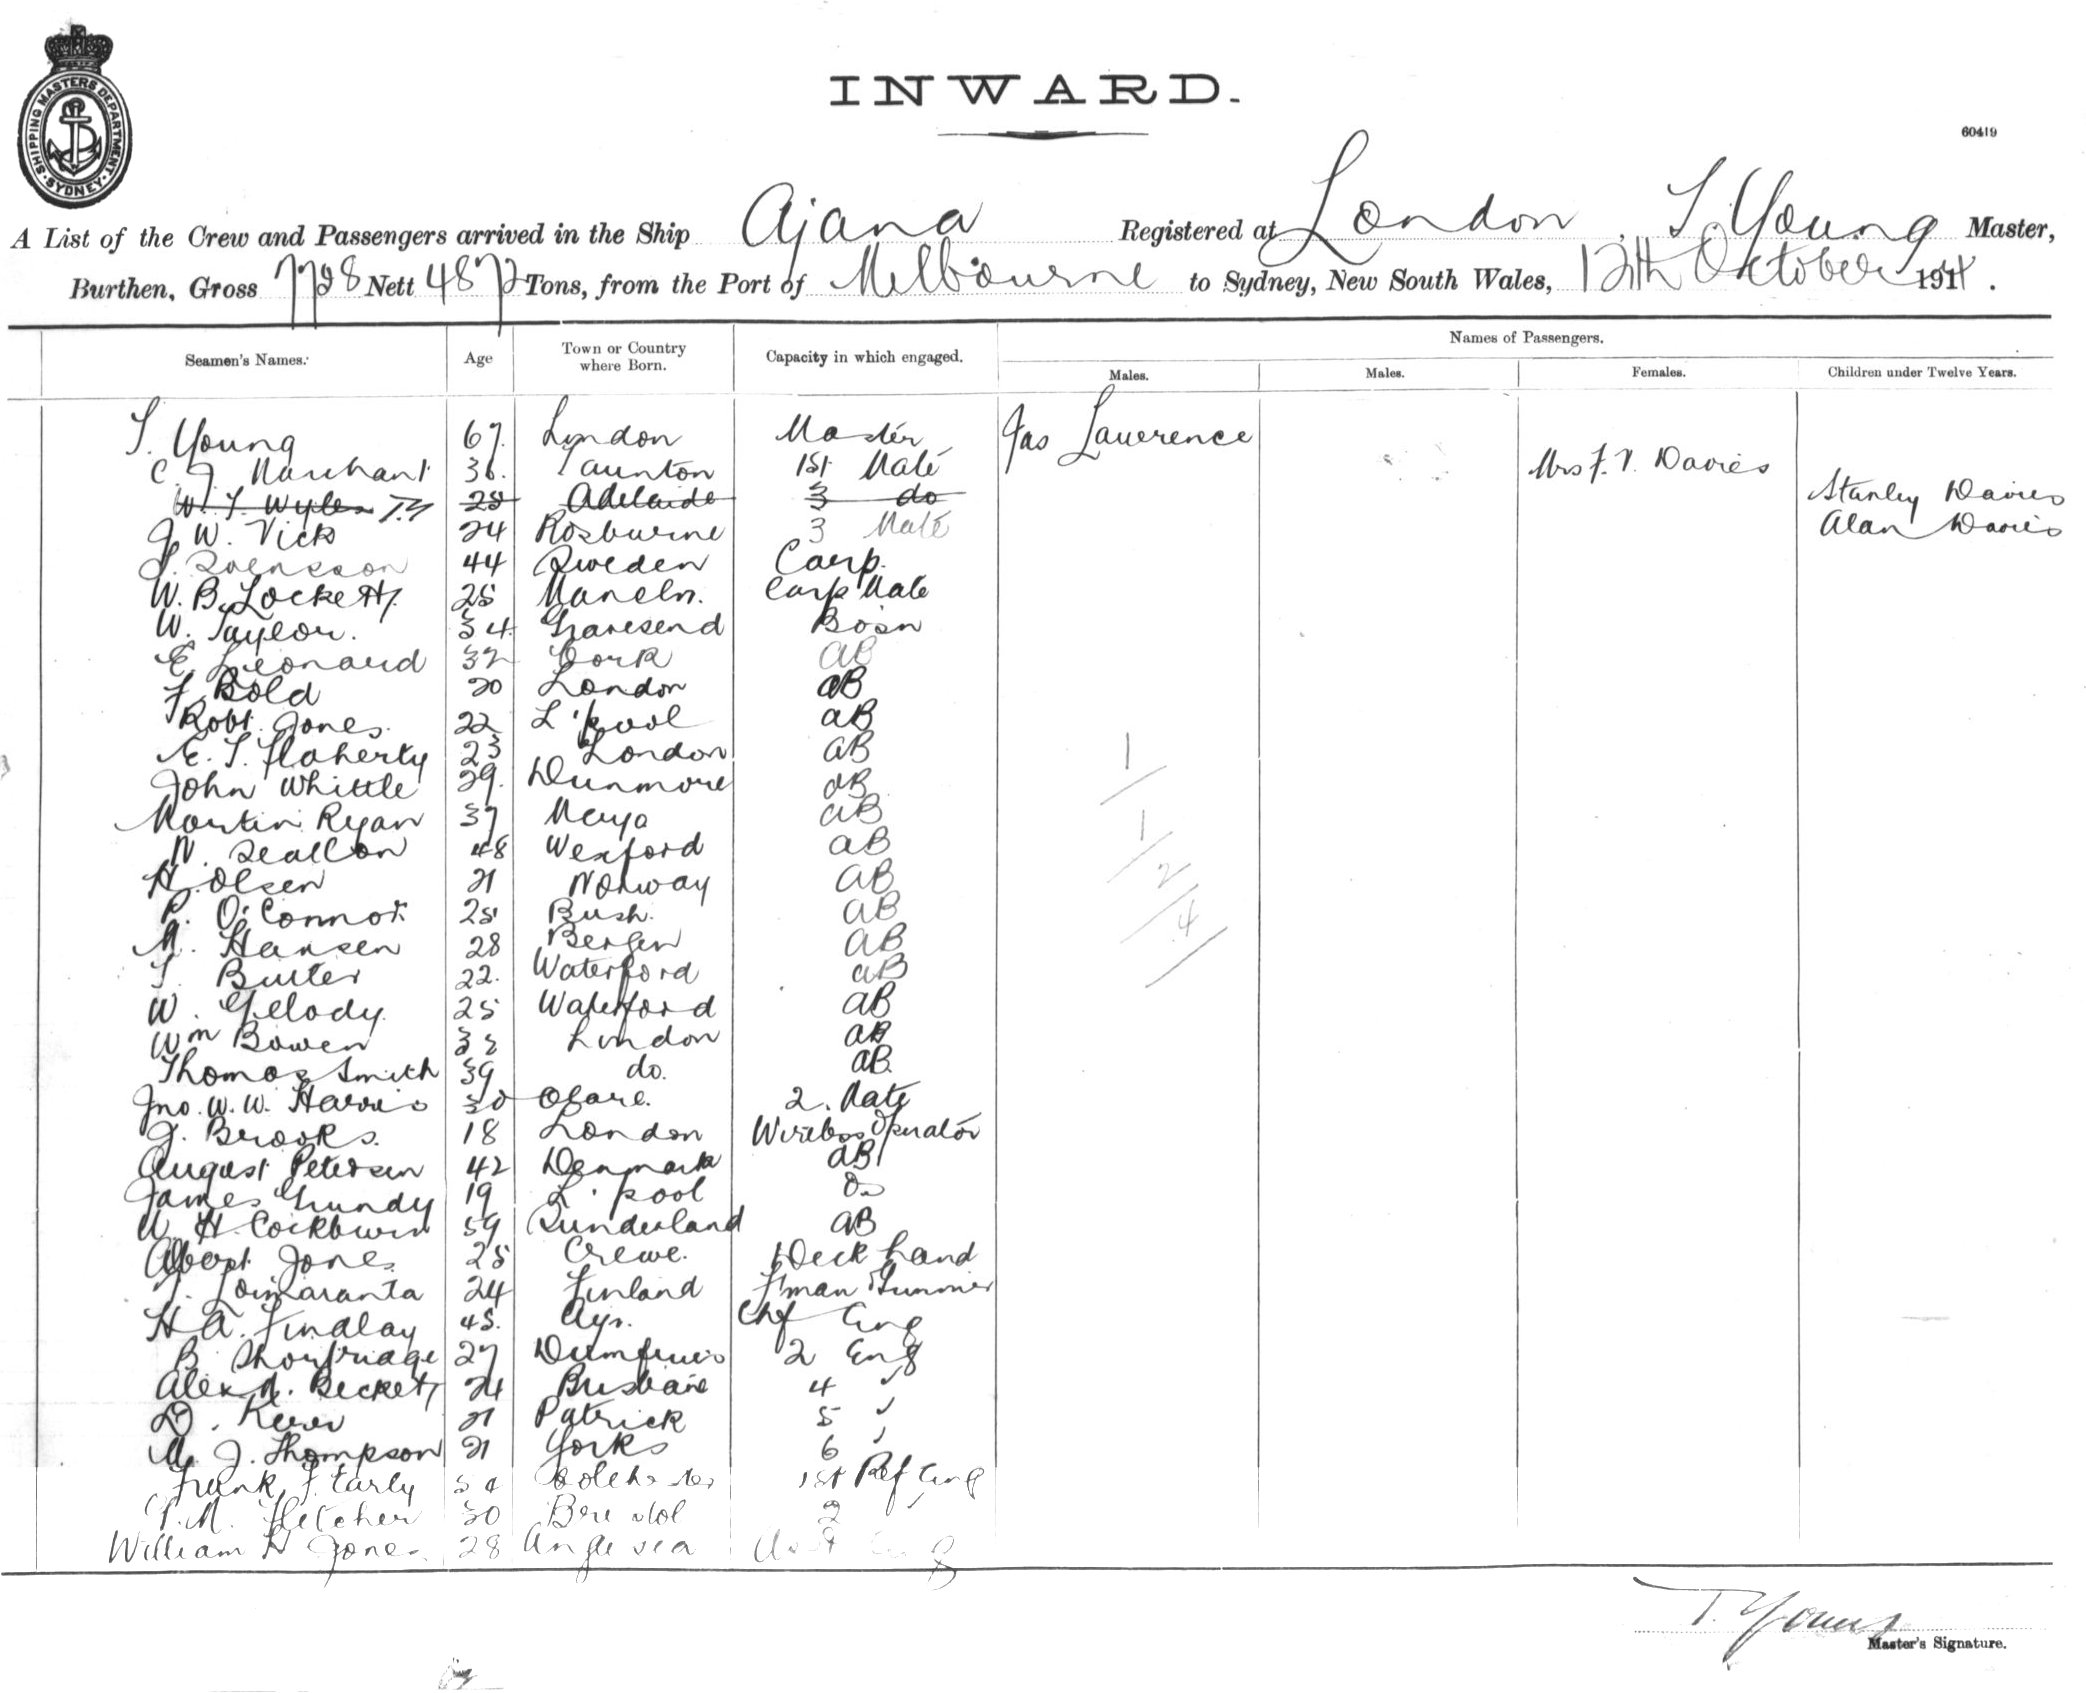 SHIPPING MASTERS DEPARTMENT. SYDNEY.
INWARD.
60419
A List of the Crew and Passengers arrived in the Ship Ajana Registered at London, T. Young Master,
Burthen, Gross 7728 Nett 4872 Tons, from the Port of Melbourne to Sydney, New South Wales, 12th October 191
Names of Passengers.
Seamen's Names. Age Town or Country where Born. Capacity in which engaged. Males. Males. Females. Children under Twelve Years.
T. Young 67. London Master Jas Lawerence
C. J. Marchant 36. Taunton 1st Mate Mrs F. V. Davies
W. T. Wyles T.Y 25 Adelaide 3 do Stanley Davies
J. W. Vick 24 Rosburne 3 Mate Alan Davies
Svensson 44 Sweden Carp.
W. B. Lockett. 25 Manchr. Carp Mate
W. Taylor. 34. Gravesend Bosn
E. Leonard 32 Cork AB
F. Bold 20 London AB
Robt. Jones. 22 L'pool AB
E. T. Flaherty 23 London AB
John Whittle 29. Dunmore AB
Martin Ryan 37 Mayo AB
N. Scallon 48 Wexford AB
H. Olsen 21 Norway AB
P. O'Connor. 25 Bush. AB
M. Hansen 28 Bergen AB
T. Butler 22. Waterford AB
W. Melody. 25 Waterford AB
Wm Bowen 33 London AB
Thomas Smith 39 do. AB.
Jno. W. W. Harris 30 Clare. 2. Mate
J. Brooks. 18 London Wireless Operator
August Petersen 42 Denmark AB
James Grundy 19 L'pool Do
W. H. Cockburn 59 Sunderland AB
Albert Jones 25 Crewe. Deck hand
24 Finland F'man Trimmer
H. A. Findlay 45. Ayr. Chf Eng
B. Shortridge 27 Dumfries 2 Eng
Alex A. Beckett 24 Brisbane 4 "
D. Kerr 21 Patrick 5 "
J. Thompson 21 Yorks 6 "
Frank F. Early Colchester 1st Ref Eng
M. Fletcher 30 Bristol 2
William H Jones. 28 Anglesea Asst Eng
1
1
2
4
T. Young
Master's Signature.